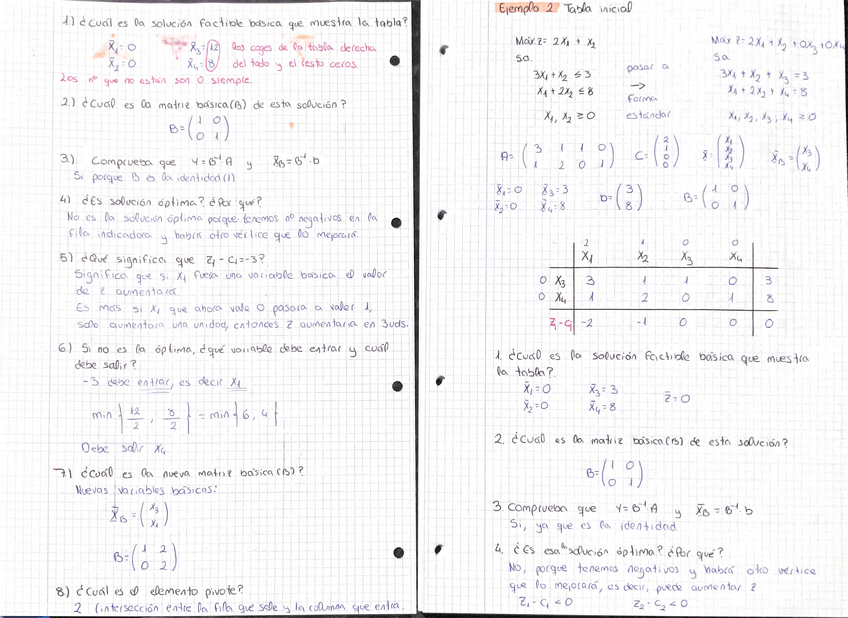 1.) ¿Cuál es la solución factible básica que muestra la tabla?
X̄₁=0 X̄₃=12 los cajes de la tabla derecha
X̄₂=0 X̄₄=8 del todo y el resto ceros.
Los nº que no están son 0 siempre.
2.) ¿Cuál es la matriz básica (B) de esta solución?
B=(1 0
0 1)
3.) Comprueba que Y=B⁻¹A y X̄B=B⁻¹·b
Si porque B es la identidad (I)
4) ¿Es solución óptima? ¿Por qué?
No es la solución óptima porque tenemos nº negativos en la
fila indicadora y habrá otro vértice que lo mejorará.
5.) ¿Qué significa que Z₁-C₁=-3?
Significa que si X₁ fuera una variable básica el valor
de Z aumentará.
Es más si X₁ que ahora vale 0 pasara a valer 1,
solo aumentara una unidad, entonces Z aumentaría en 3uds.
6.) Si no es la óptima, ¿qué variable debe entrar y cuál
debe salir?
-3 debe entrar, es decir X₁
min { 12/2 , 8/2 } = min { 6, 4 }
Debe salir X₄
7.) ¿Cuál es la nueva matriz básica (B)?
Nuevas variables básicas:
X̄B=(X₃
X₁)
B=(1 2
0 2)
8.) ¿Cuál es el elemento pivote?
2 (intersección entre la fila que sale y la columna que entra.
Ejemplo 2 Tabla inicial
Máx Z= 2X₁ + X₂
S.a.
3X₁+X₂ ≤ 3
X₁+2X₂ ≤ 8
X₁, X₂ ≥ 0
pasar a
→
forma
estándar
Máx Z=2X₁+X₂+0X₃+0X₄
S.a
3X₁+X₂+X₃=3
X₁+2X₂+X₄=8
X₁, X₂, X₃, X₄ ≥ 0
A=(3 1 1 0
1 2 0 1)
C=(2
1
0
0)
X̄=(X₁
X₂
X₃
X₄)
X̄B=(X₃
X₄)
X̄₁=0 X̄₃=3
X̄₂=0 X̄₄=8
b=(3
8)
B=(1 0
0 1)
2 1 0 0
X₁ X₂ X₃ X₄
0 X₃ 3 1 1 0 3
0 X₄ 1 2 0 1 8
Zⱼ-Cⱼ -2 -1 0 0 0
1. ¿Cuál es la solución factible básica que muestra
la tabla?
X̄₁=0 X̄₃=3 Z̄=0
X̄₂=0 X̄₄=8
2. ¿Cuál es la matriz básica (B) de esta solución?
B=(1 0
0 1)
3. Comprueba que Y=B⁻¹A y X̄B=B⁻¹·b
Si, ya que es la identidad
4. ¿Es esa solución óptima? ¿Por qué?
No, porque tenemos negativos y habrá otro vértice
que lo mejorará, es decir, puede aumentar Z
Z₁-C₁<0 Z₂-C₂<0